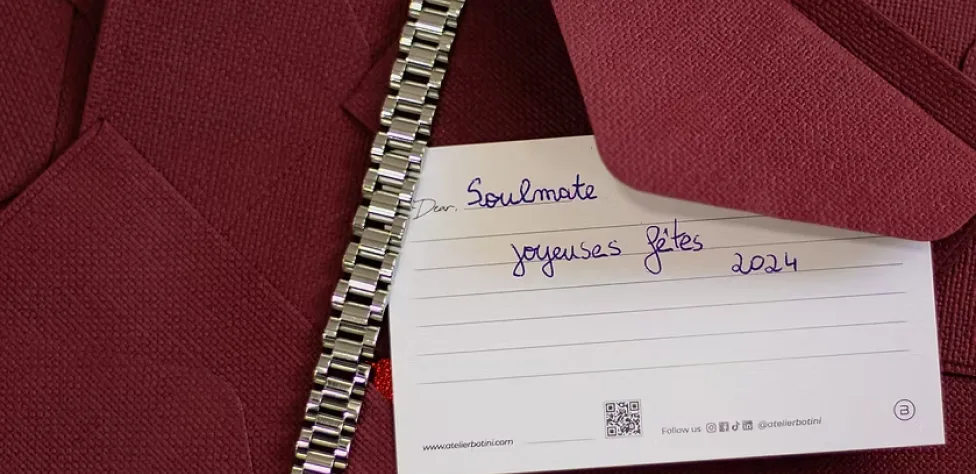 Dear, Soulmate
Joyeuses fêtes
2024
www.atelierbotini.com
Follow us @atelierbotini
B